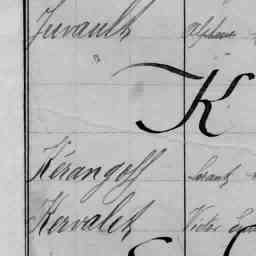 Juvault Alphonse
"
K
Kerangoff
Kervalet Victor